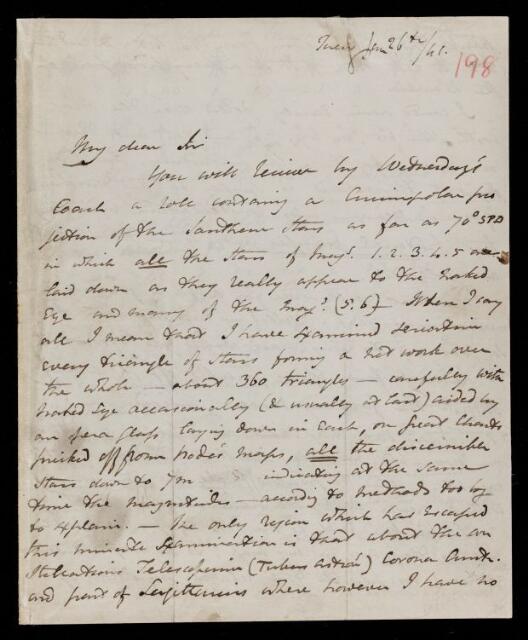 Tuesy Jan 26th/41.
198
My dear Sir
You will receive by Wednesday's
Coach a roll containing a Circumpolar pro
jection of the Southern Stars as far as 70° SPD
in which all the Stars of Magn. 1. 2. 3. 4. 5 are
laid down as they really appear to the Naked
Eye and many of the Magn. (5.6) - When I say
all I mean that I have examined seriatim
every triangle of Stars forming a net work over
the whole - about 360 triangles - carefully with
Naked Eye occasionally (& usually at last) aided by
an opera glass laying down in each, on great Charts
pricked off from Bode's maps, all the discernible
Stars down to 7m indicating at the same
time the magnitudes - accordg to methods too lg
to explain. - The only region which has escaped
this minute Examination is that about the con
stellations Telescopium (Tubus astron) Corona Austr.
and part of Sagittarius where however I have no